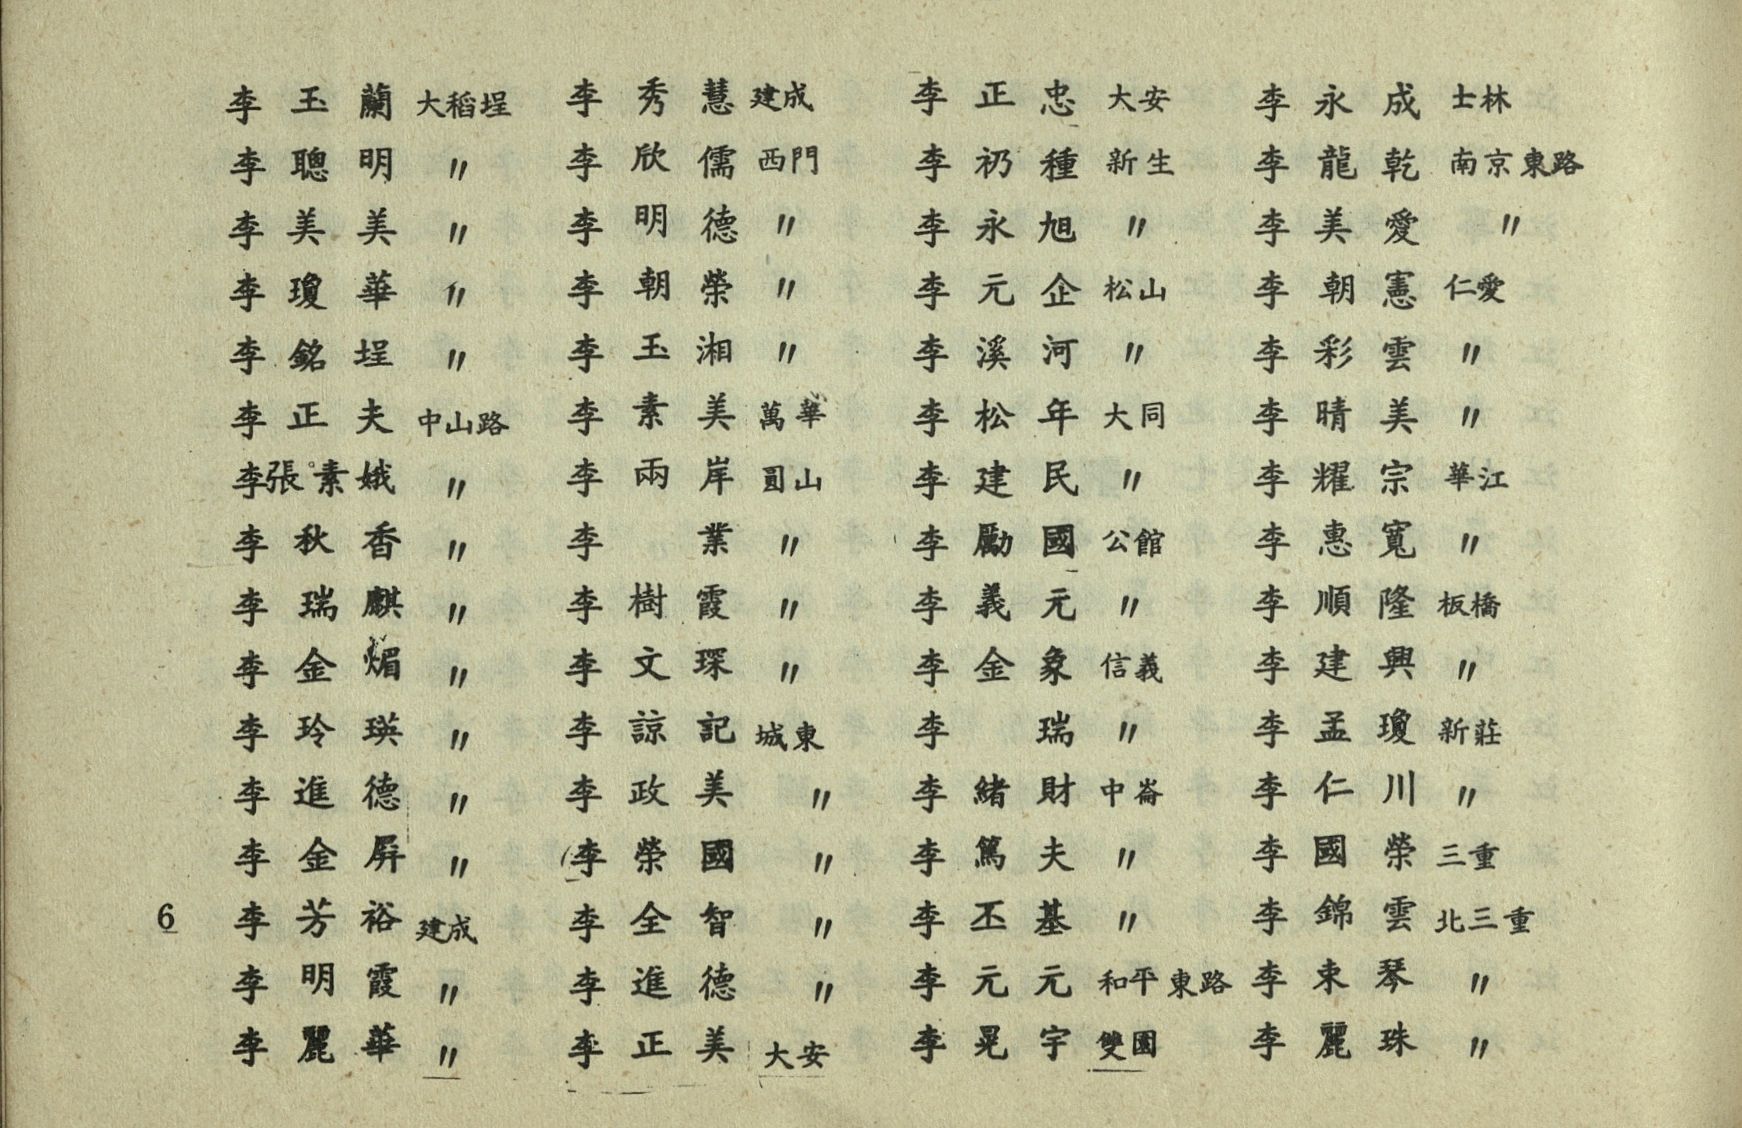 李玉蘭 大稻埕
李聰明 〃
李美美 〃
李瓊華 〃
李銘埕 〃
李正夫 中山路
李張素娥 〃
李秋香 〃
李瑞麒 〃
李金煝 〃
李玲瑛 〃
李進德 〃
李金屏 〃
李芳裕 建成
李明霞 〃
李麗華 〃
李秀慧 建成
李欣儒 西門
李明德 〃
李朝榮 〃
李玉湘 〃
李素美 萬華
李兩岸 圓山
李業 〃
李樹霞 〃
李文琛 〃
李諒記 城東
李政美 〃
李榮國 〃
李全智 〃
李進德 〃
李正美 大安
李正忠 大安
李礽種 新生
李永旭 〃
李元企 松山
李溪河 〃
李松年 大同
李建民 〃
李勵國 公館
李義元 〃
李金象 信義
李瑞 〃
李緒財 中崙
李篤夫 〃
李丕基 〃
李元元 和平東路
李晃宇 雙園
李永成 士林
李龍乾 南京東路
李美愛 〃
李朝憲 仁愛
李彩雲 〃
李晴美 〃
李耀宗 華江
李惠寬 〃
李順隆 板橋
李建興 〃
李孟瓊 新莊
李仁川 〃
李國榮 三重
李錦雲 北三重
李束琴 〃
李麗珠 〃
6